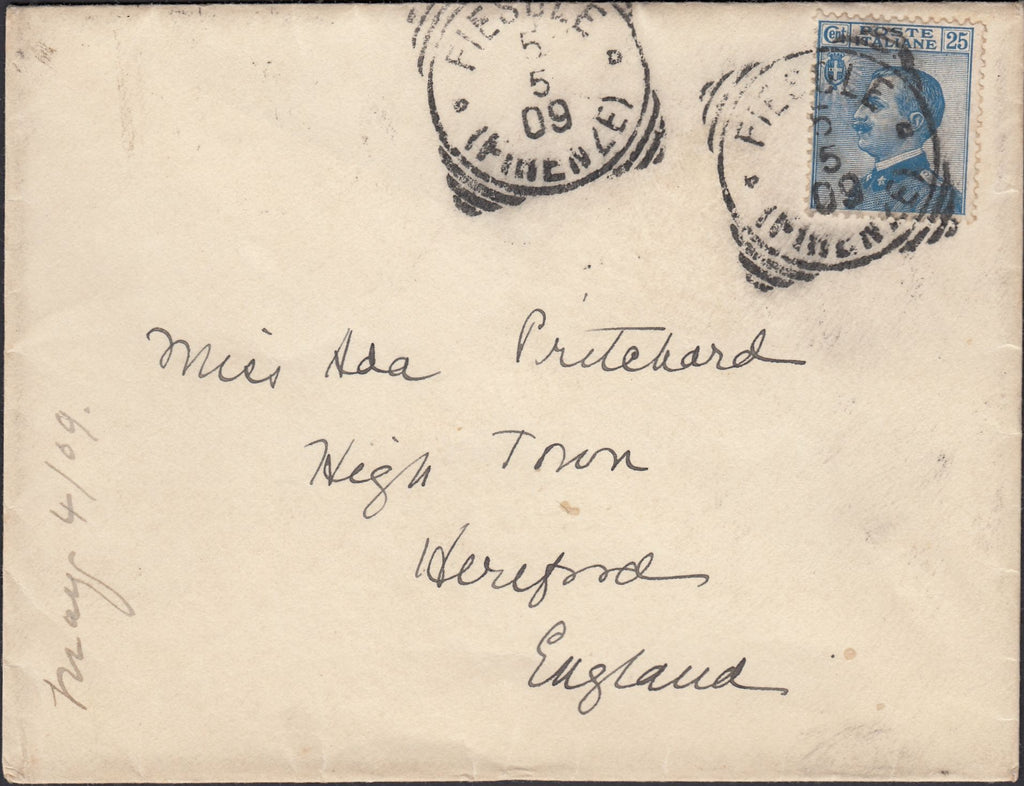 FIESOLE
5
5
09
(FIRENZE)
Cent POSTE ITALIANE 25
FIESOLE
5
5
09
(FIRENZE)
Miss Ada Pritchard
High Town
Hereford
England
May 4/09.